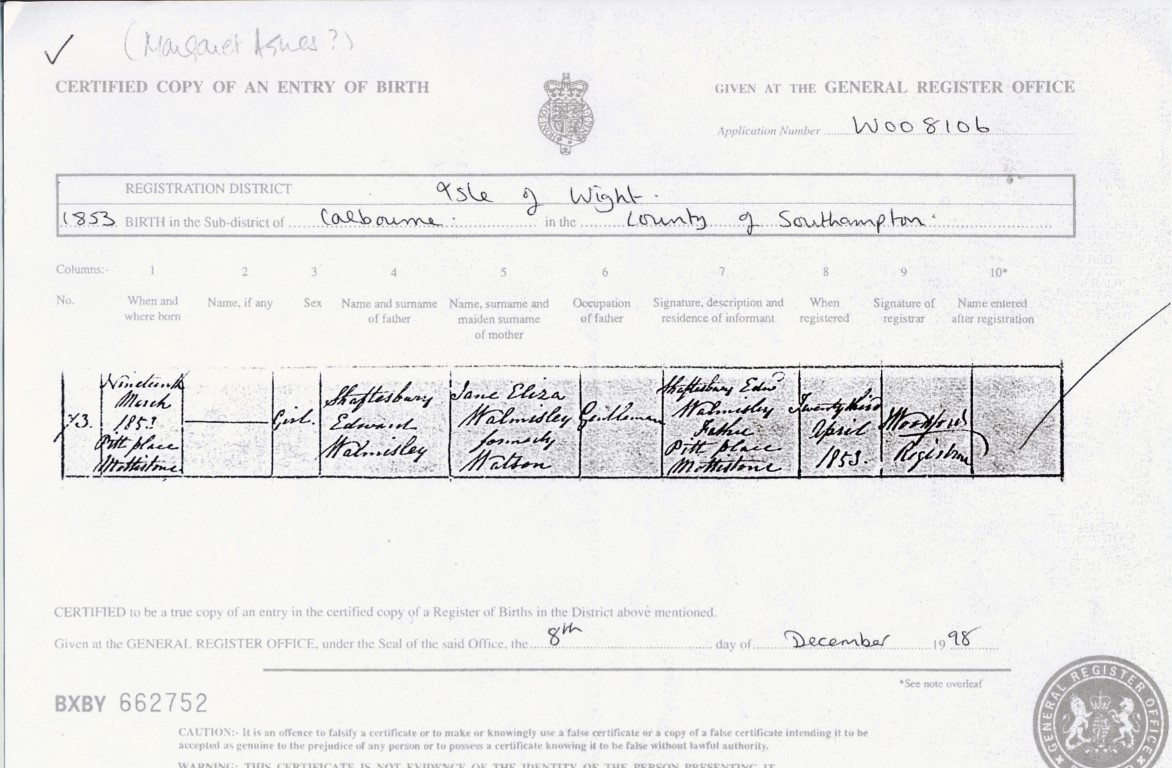 (Margaret Agnes?)
CERTIFIED COPY OF AN ENTRY OF BIRTH
GIVEN AT THE GENERAL REGISTER OFFICE
Application Number W008106
REGISTRATION DISTRICT Isle of Wight.
1853 BIRTH in the Sub-district of Calbourne. in the County of Southampton.
Columns:- 1 2 3 4 5 6 7 8 9 10*
No. When and where born Name, if any Sex Name and surname of father Name, surname and maiden surname of mother Occupation of father Signature, description and residence of informant When registered Signature of registrar Name entered after registration
73. Nineteenth March 1853 Pitt place Mottistone Girl. Shaftesbury Edward Walmisley Jane Eliza Walmisley formerly Watson Gentleman Shaftesbury Edwd Walmisley Father Pitt place Mottistone Twenty third April 1853. Registrar
CERTIFIED to be a true copy of an entry in the certified copy of a Register of Births in the District above mentioned.
Given at the GENERAL REGISTER OFFICE, under the Seal of the said Office, the 8th day of December 1998
*See note overleaf
BXBY 662752
CAUTION:- It is an offence to falsify a certificate or to make or knowingly use a false certificate or a copy of a false certificate intending it to be
accepted as genuine to the prejudice of any person or to possess a certificate knowing it to be false without lawful authority.
WARNING: THIS CERTIFICATE IS NOT EVIDENCE OF THE IDENTITY OF THE PERSON PRESENTING IT.
GENERAL REGISTER OFFICE